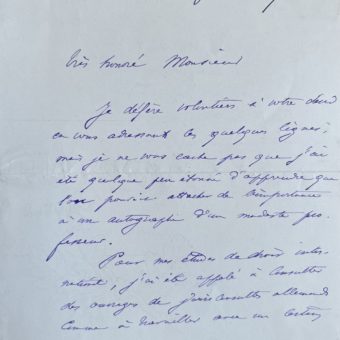 très honoré Monsieur
Je défère volontiers à votre désir
en vous adressant les quelques lignes;
mais je ne vous cache pas que j'ai
été quelque peu étonné d'apprendre que
l'on pouvait attacher de l'importance
à un autographe d'un modeste pro-
fesseur.
Pour mes études de droit inter-
national, j'ai été appelé à consulter
des ouvrages de jurisconsultes allemands
comme à travailler avec un certain